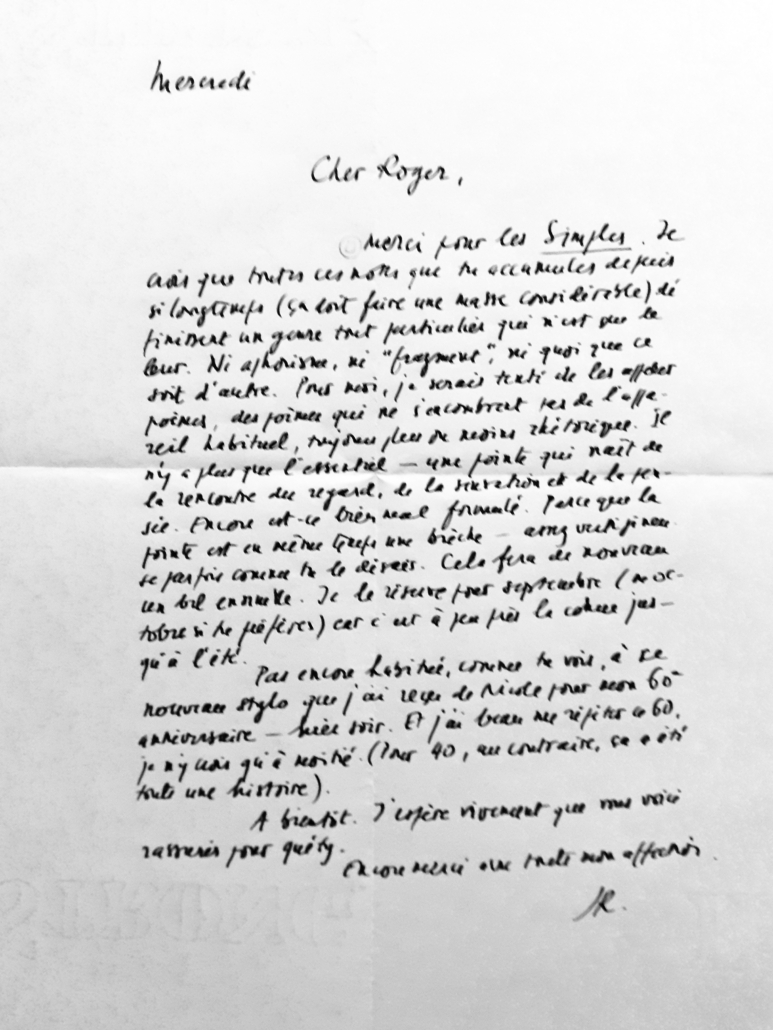 Mercredi
Cher Roger,
Merci pour les Simples. Je
crois que toutes ces notes que tu accumules depuis
si longtemps (ça doit faire une masse considérable) dé
finissent un genre tout particulier qui n'est que le
leur. Ni aphorisme, ni "fragment", ni quoi que ce
soit d'autre. Pour moi, je serais tenté de les appeler
poèmes, des poèmes qui ne s'encombrent pas de l'appa-
reil habituel, toujours plus ou moins rhétorique. Il
n'y a plus que l'essentiel — une pointe qui naît de
la rencontre du regard, de la sensation et de la pen-
sée. Encore est-ce bien mal formulé. Parce que la
pointe est en même temps une brèche — assez vertigineuse
parfois comme tu le dirais. Cela fera de nouveau
un bel ensemble. Je le réserve pour septembre (ou oc-
tobre si tu préfères) car c'est à peu près la cohue jus-
qu'à l'été.
Pas encore habitué, comme tu vois, à ce
nouveau stylo que j'ai reçu de Nicole pour mon 60e
anniversaire — hier soir. Et j'ai beau me répéter ce 60,
je n'y crois qu'à moitié. (Pour 40, au contraire, ça a été
toute une histoire).
A bientôt. J'espère vivement que vous voici
rassurés pour
Encore merci avec toute mon affection.